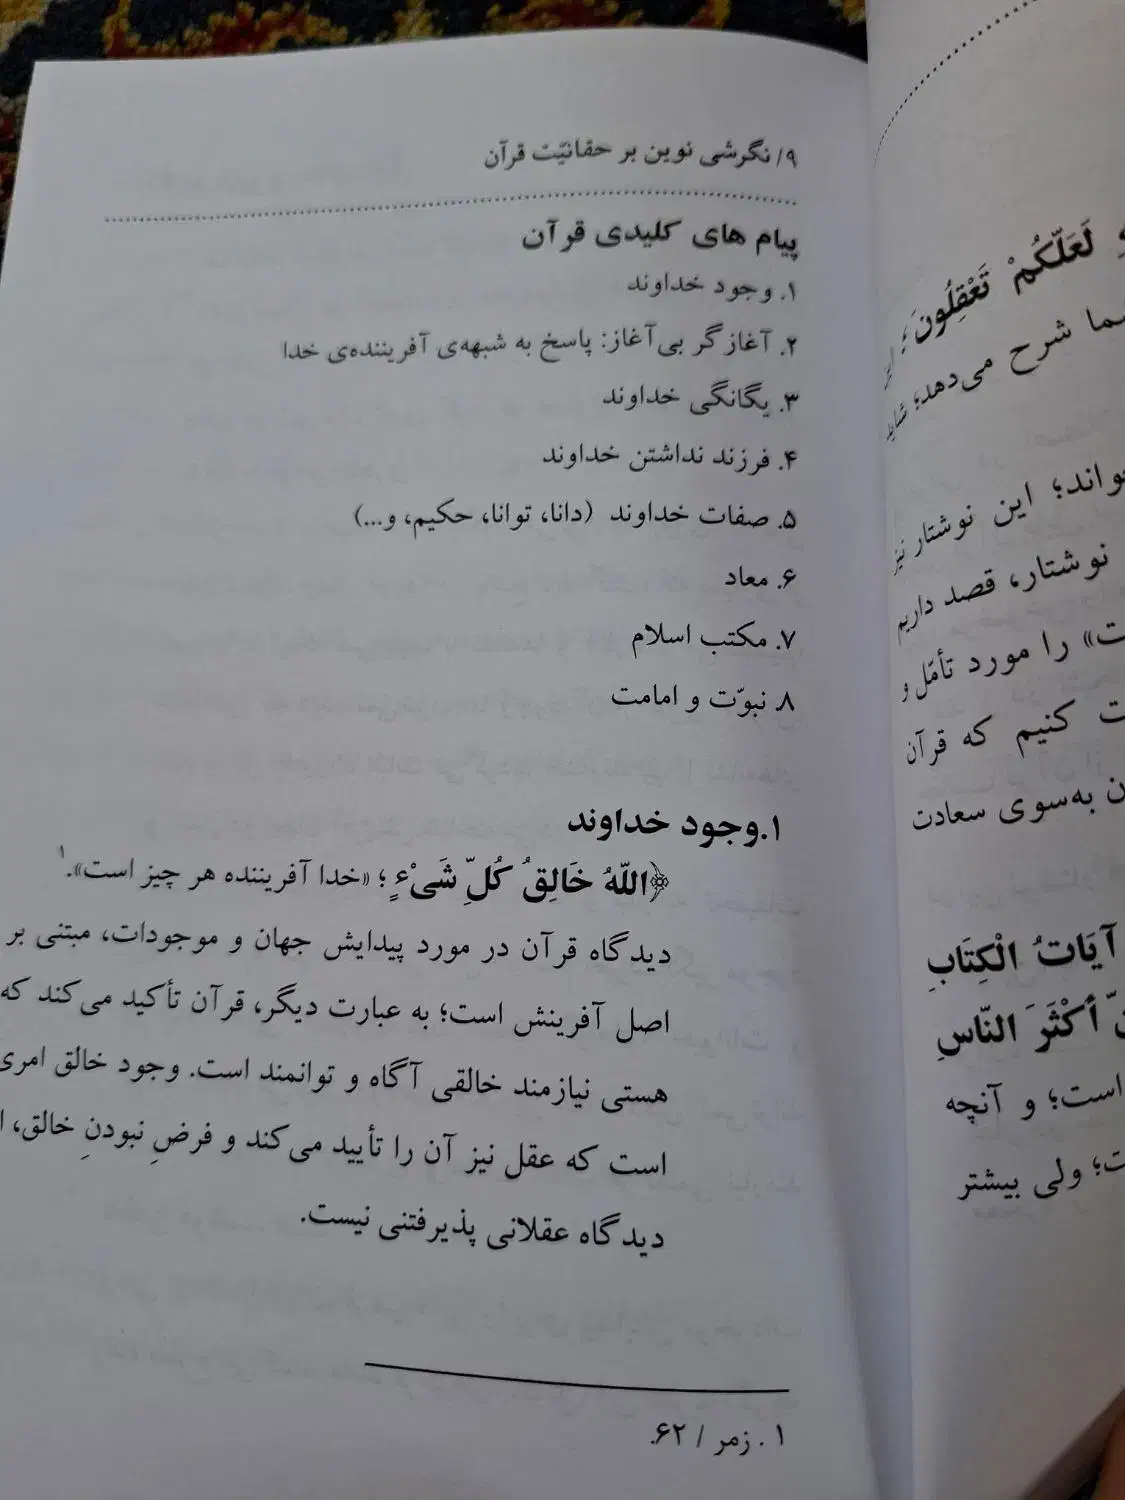 لَعَلَّكُمْ تَعْقِلُونَ؛
شما شرح می‌دهد؛ شاید
این نوشتار نیز
نوشتار، قصد داریم
را مورد تأمّل و
کنیم که قرآن
به‌سوی سعادت
آيَاتُ الْكِتَابِ
أَكْثَرَ النَّاسِ
است؛ و آنچه
ولی بیشتر
۹/ نگرشی نوین بر حقانیّت قرآن
پیام های کلیدی قرآن
۱. وجود خداوند
۲. آغازگر بی‌آغاز: پاسخ به شبهه‌ی آفریننده‌ی خدا
۳. یگانگی خداوند
۴. فرزند نداشتن خداوند
۵. صفات خداوند (دانا، توانا، حکیم، و...)
۶. معاد
۷. مکتب اسلام
۸. نبوّت و امامت
۱.وجود خداوند
﴿اللَّهُ خَالِقُ كُلِّ شَيْءٍ؛ «خدا آفریننده هر چیز است».۱
دیدگاه قرآن در مورد پیدایش جهان و موجودات، مبتنی بر
اصل آفرینش است؛ به عبارت دیگر، قرآن تأکید می‌کند که
هستی نیازمند خالقی آگاه و توانمند است. وجود خالق امری
است که عقل نیز آن را تأیید می‌کند و فرضِ نبودنِ خالق،
دیدگاه عقلانی پذیرفتنی نیست.
۱. زمر / ۶۲.